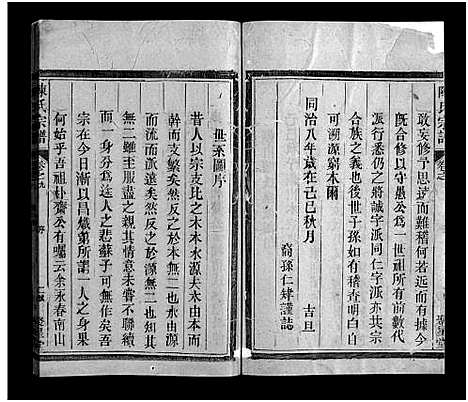 陳氏宗譜
卷之
敢妄修予思訪而難稽何若近而有據今
旣合修以守愚公為一世祖所有前數代
派行悉仍之將誠字派同仁字派亦共宗
合族之義也後世子孫如有稽查明白自
可溯源窮本爾
同治八年歲在己巳秋月 吉旦
裔孫仁肂謹誌
世系圖序
昔人以宗支比之木本水源夫木由本而
幹而支繁矣然反之於本無二也水由源
而流而派遠矣然反之於源無二也知其
無二雖至服盡之親其情意未嘗不聯續
而一人身分為途人之悲蘇子可無作矣吾
宗在今日漸以昌熾第所謂一人之身果
何始乎吾祖朴齋公有囑云余永春南山
陳氏宗譜
卷之九
序
聚星堂